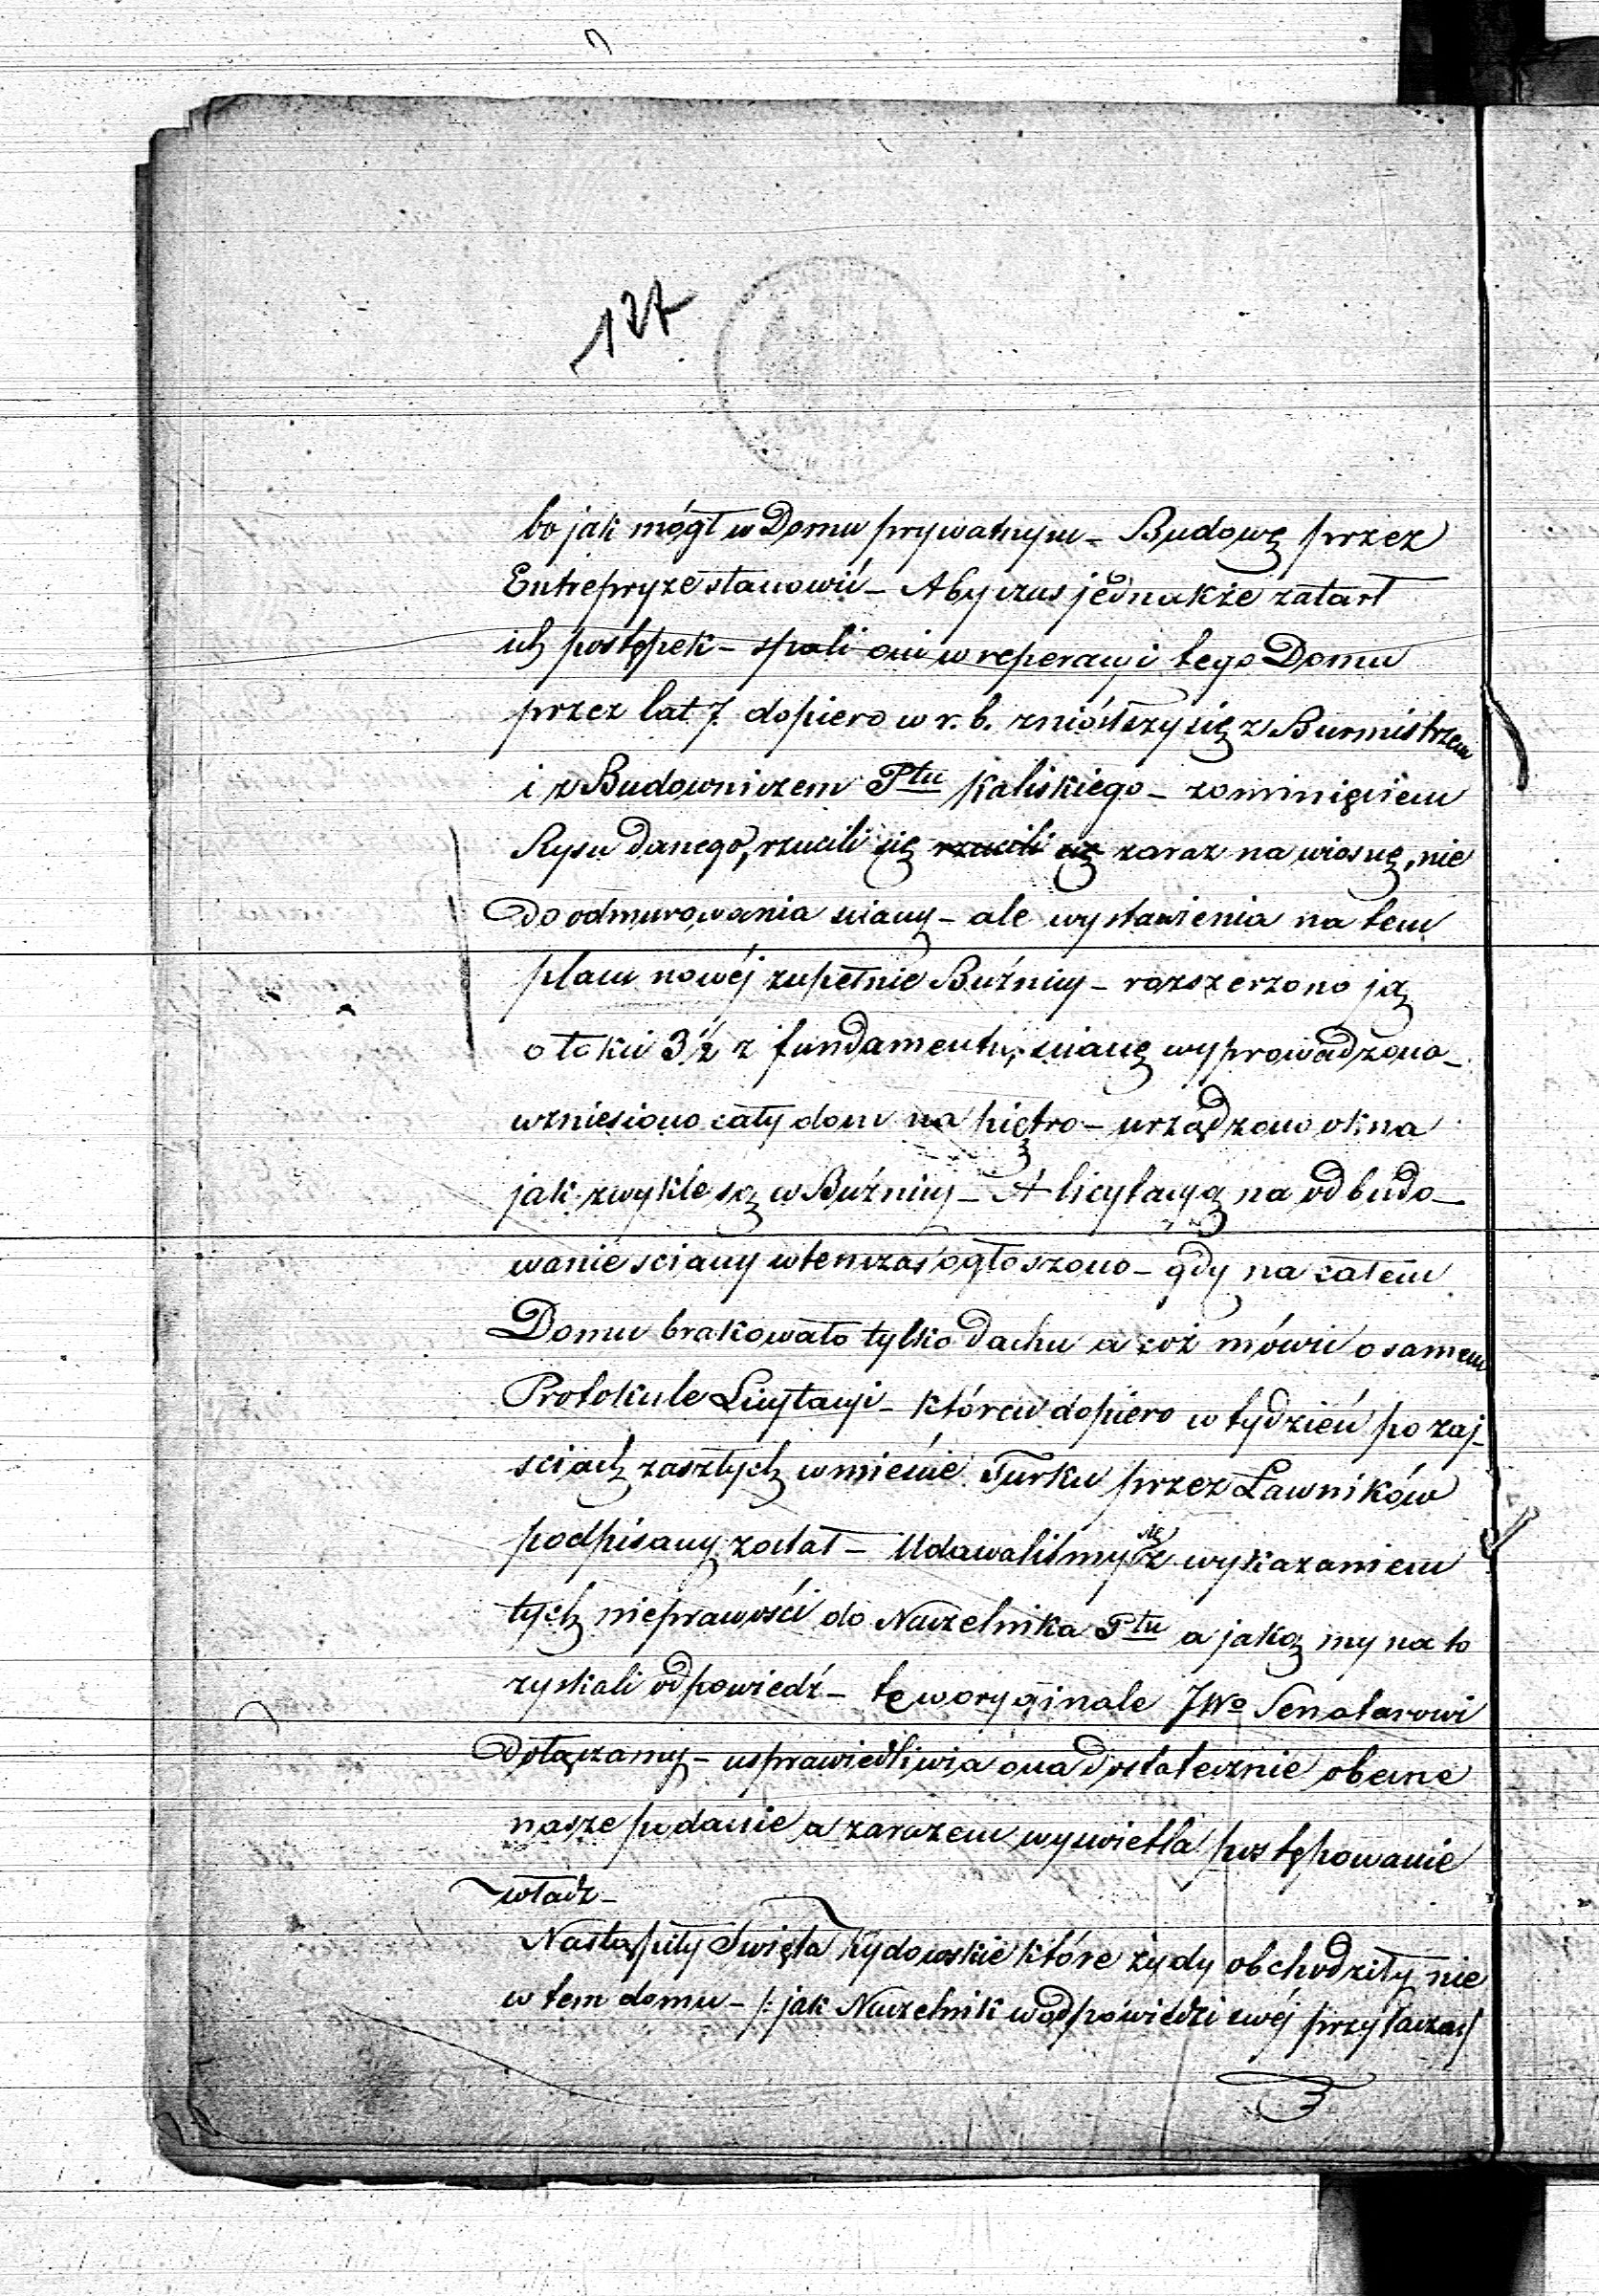 127
bo jak mógł w Domu prywatnym – Budowę przez
Entrepryzę stanowić – Aby czas jednakże zatarł
ich postępek – spali oni w reperacyi tego Domu
przez lat 7. dopiero w r. b. zniósłszy się z Burmistrzem
i z Budowniczem Ptu Kaliskiego – zominięciem
Rysu danego, rzucili się rzucili się zaraz na wiosnę, nie
do odmurowania sciany – ale wystawienia na tem
placu nowéj zupełnie Buźnicy – rozszerzono ją
o łokci 3½ z fundamentu, scianę wyprowadzono –
wzniesiono cały dom na piętro – urządzono okna
jak zwykle są w Buźnicy – A licytacyą na odbudo-
wanie sciany wtenczas ogłoszono – gdy na całem
Domu brakowało tylko dachu a coż mówić o samem
Protokule Licytacyi – któren dopiero w tydzień po zaj-
sciach zaszłych w mieście Turku przez Ławników
podpisany został – Udawaliśmy się z wykazaniem
tych nieprawości do Naczelnika Ptu a jaką my na to
zyskali odpowiedź – tę w oryginale JWo Senatorowi
dołączamy – usprawiedliwia ona dostatecznie obecne
nasze podanie a zarazem wyświetla postępowanie
władz –
Nastąpiły Święta Żydowskie które żydy obchodziły nie
w tem domu – /: jak Naczelnik w odpowiedzi swéj przytacza :/